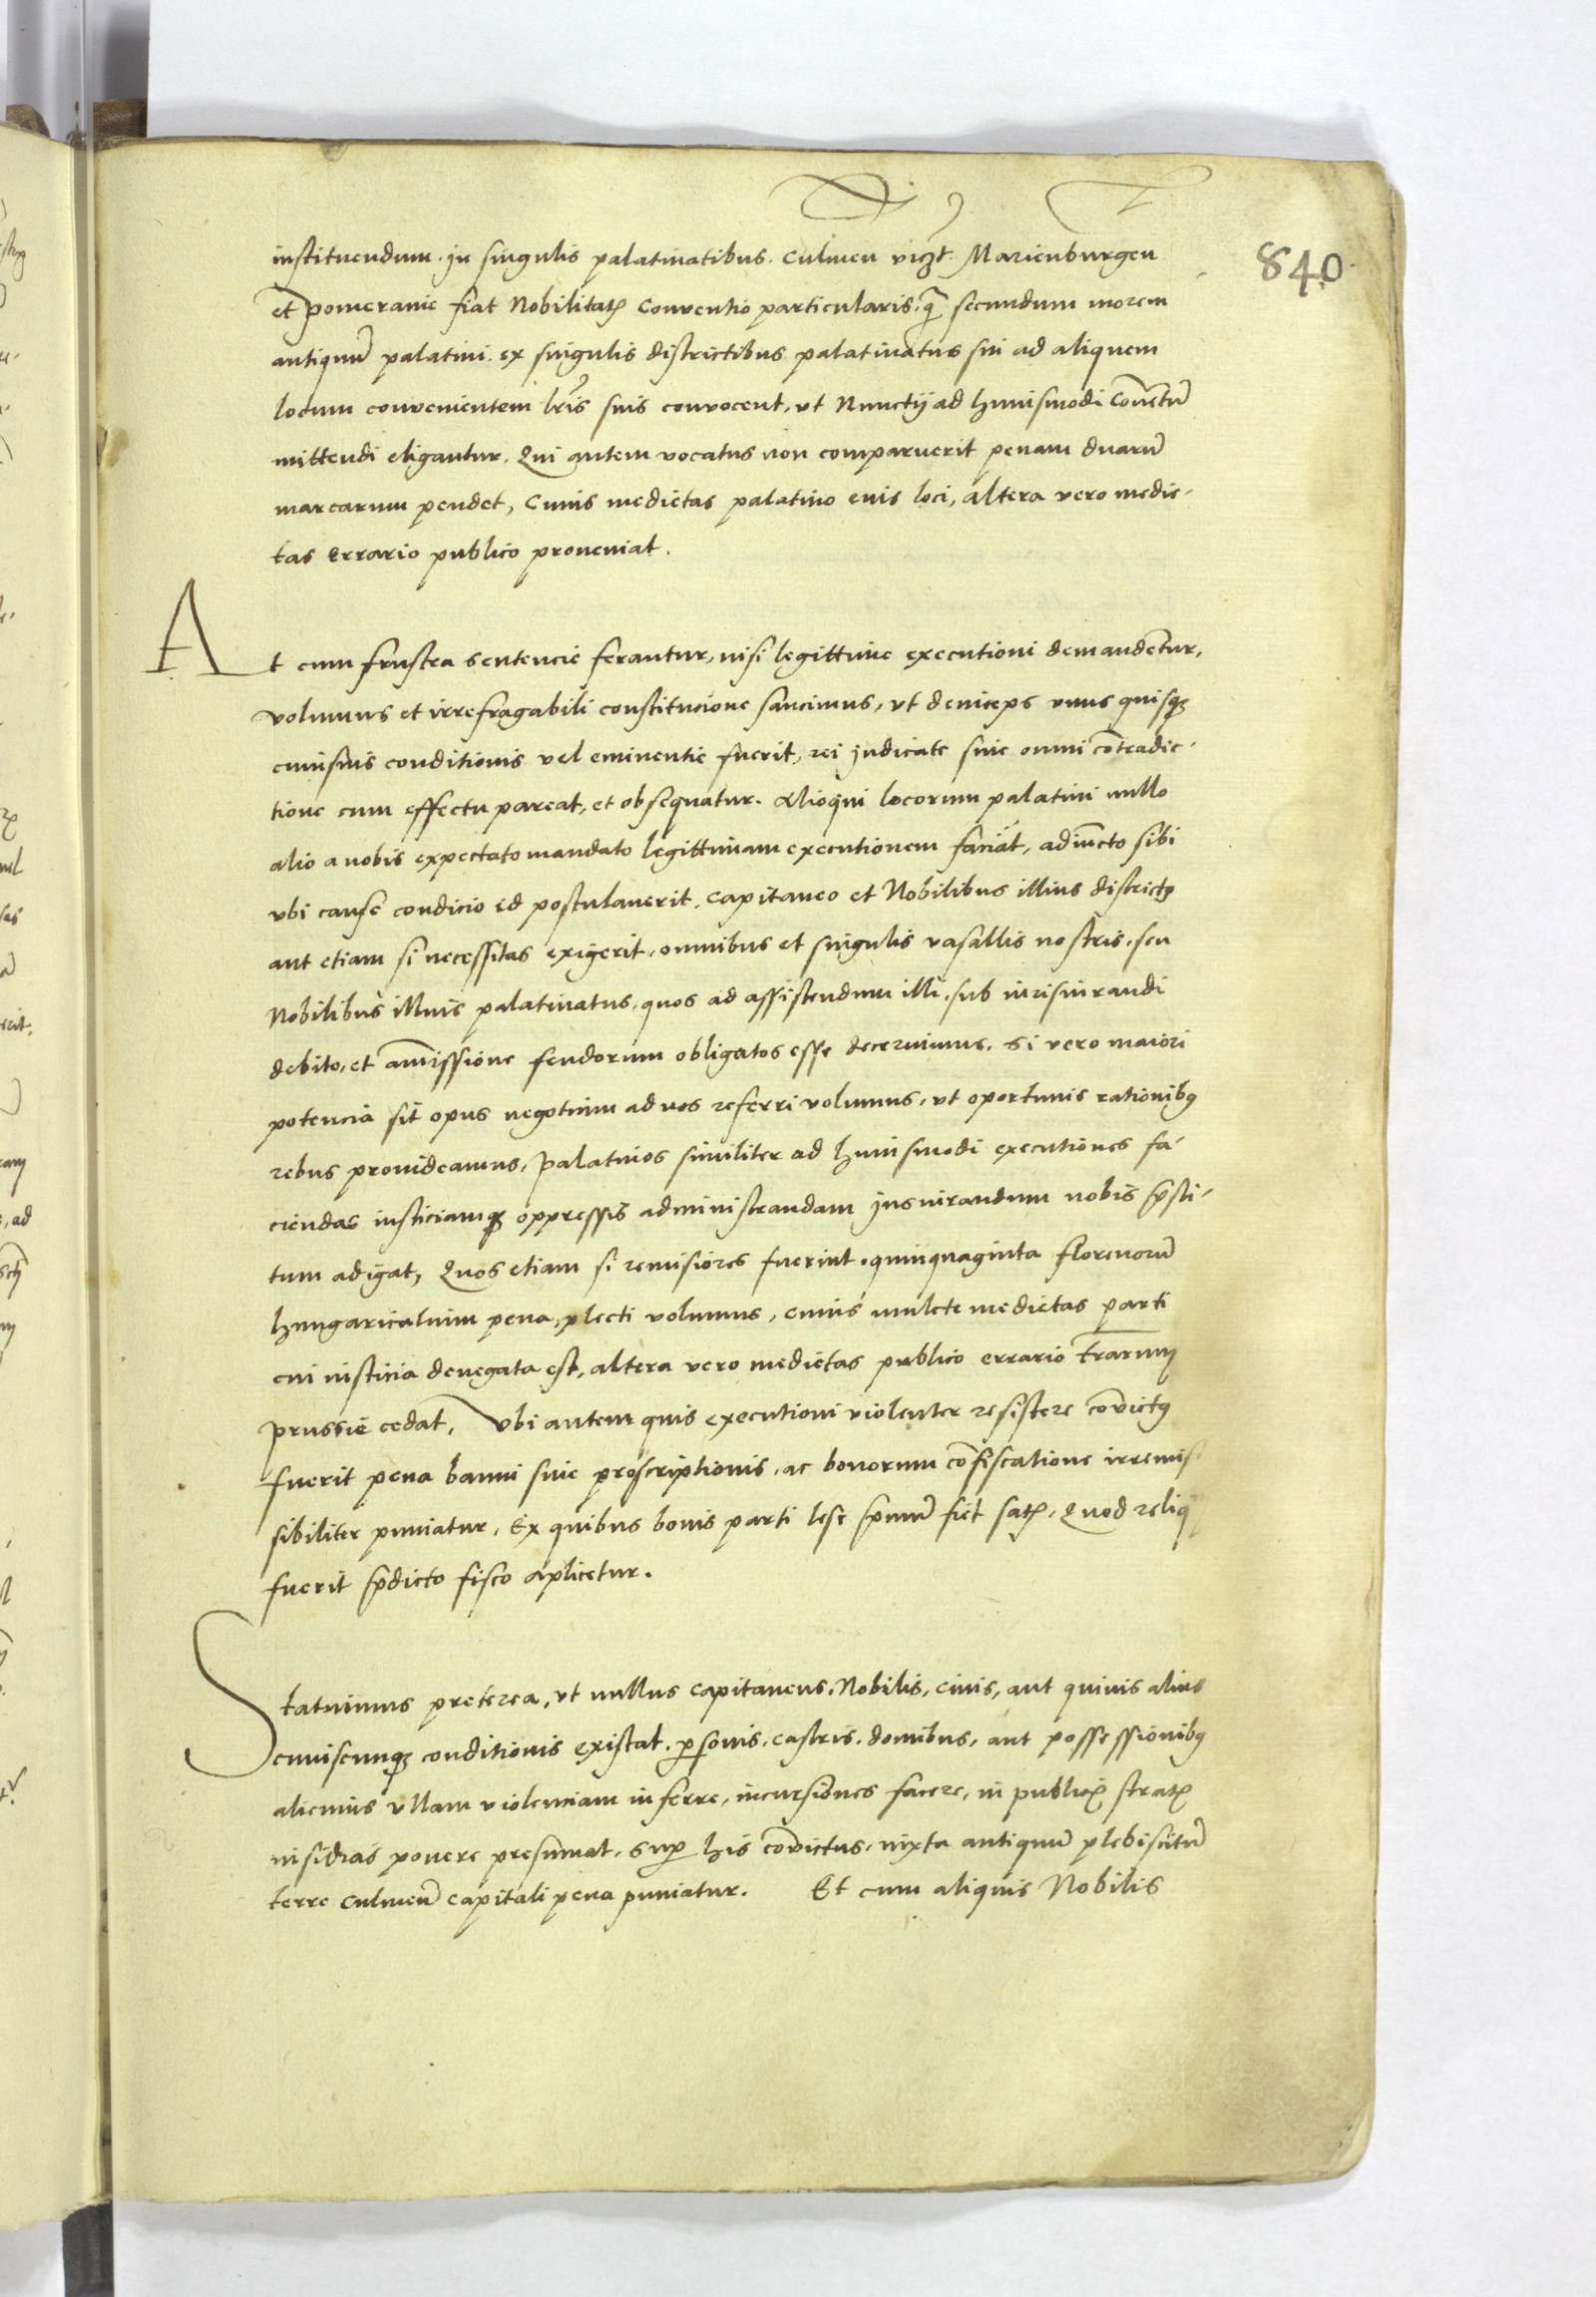 840
instituendum. in singulis palatinatibus. Culmen̄ vicz̄t. Marienburgen̄
et Pomeranie fiat Nobilitatꝫ Conventio particularis. quā secundum morem
antiquū palatini. ex singulis districtibus palatinatus sui ad aliquem
locum convenientem lr̄is suis convocent, vt Nunctij ad huiusmodi Conventū
mittendi eligantur. Qui autem vocatus non comparuerit penam duarū
marcarum pendet, Cuius medietas palatino eius loci, altera vero medie-
tas errario publico proveniat.
At cum frustra sentencie ferantur, nisi legittime executioni demandentur,
volumus et irrefragabili constitucione sancimus, vt deinceps vnus quisqꝫ
cuiusuis conditionis vel eminentie fuerit, rei judicate sine omni cōtradic-
tione cum effectu pareat, et obsequatur. Alioqui locorum palatini nullo
alio a nobis expectato mandato legittimam executionem faciāt, adiūcto sibi
vbi cause condicio id postulauerit, Capitaneo et Nobilibus illius districtꝰ
aut etiam si necessitas exigerit, omnibus et singulis vasallis nostris, seu
Nobilibus illius palatinatus, quos ad assistendum illi, sub iurisiurandi
debito, et amissione feudorum obligatos esse decernimus. Si vero maiori
potencia sit opus negotium ad nos referri volumus, vt oportunis rationibꝰ
rebus prouideamus, Palatinos similiter ad huiusmodi executiones fa-
ciendas iusticiamqꝫ oppressis administrandam jusiurandum nobis p̄sti-
tum adigat, Quos etiam si remisiores fuerint, quinquaginta florenorū
hungaricalium pena, plecti volumus, cuius mulcte medietas parti
cui iusticia denegata est, altera vero medietas publico errario t̄rarum
Prussie cedat, Vbi autem quis executioni violenter resistere cōvictꝰ
fuerit pena banni siue proscriptionis, ac bonorum cōfiscatione irremis-
sibiliter puniatur, Ex quibus bonis parti lese p̄mum fiet satꝫ, Quod reliqͥ
fuerit p̄dicto fisco aplicetur.
Statuimus preterea, vt nullus Capitaneus, Nobilis, Ciuis, aut quiuis alius
cuiuscunqꝫ conditionis existat. ꝑsonis, castris, domibus, aut possessionibꝰ
alienius vllam violenciam inferre, incursiones facere, in publicꝫ stratꝫ
insidias ponere presumat, suꝑ his cōvictus, iuxta antiquū plebiscitū
terre Culmen̄ capitali pena puniatur. Et cum aliquis Nobilis